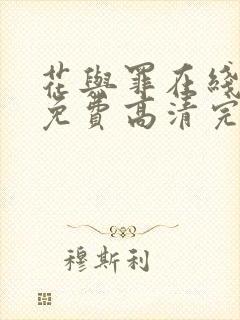 花與罪在綫
免費高清完
穆斯利